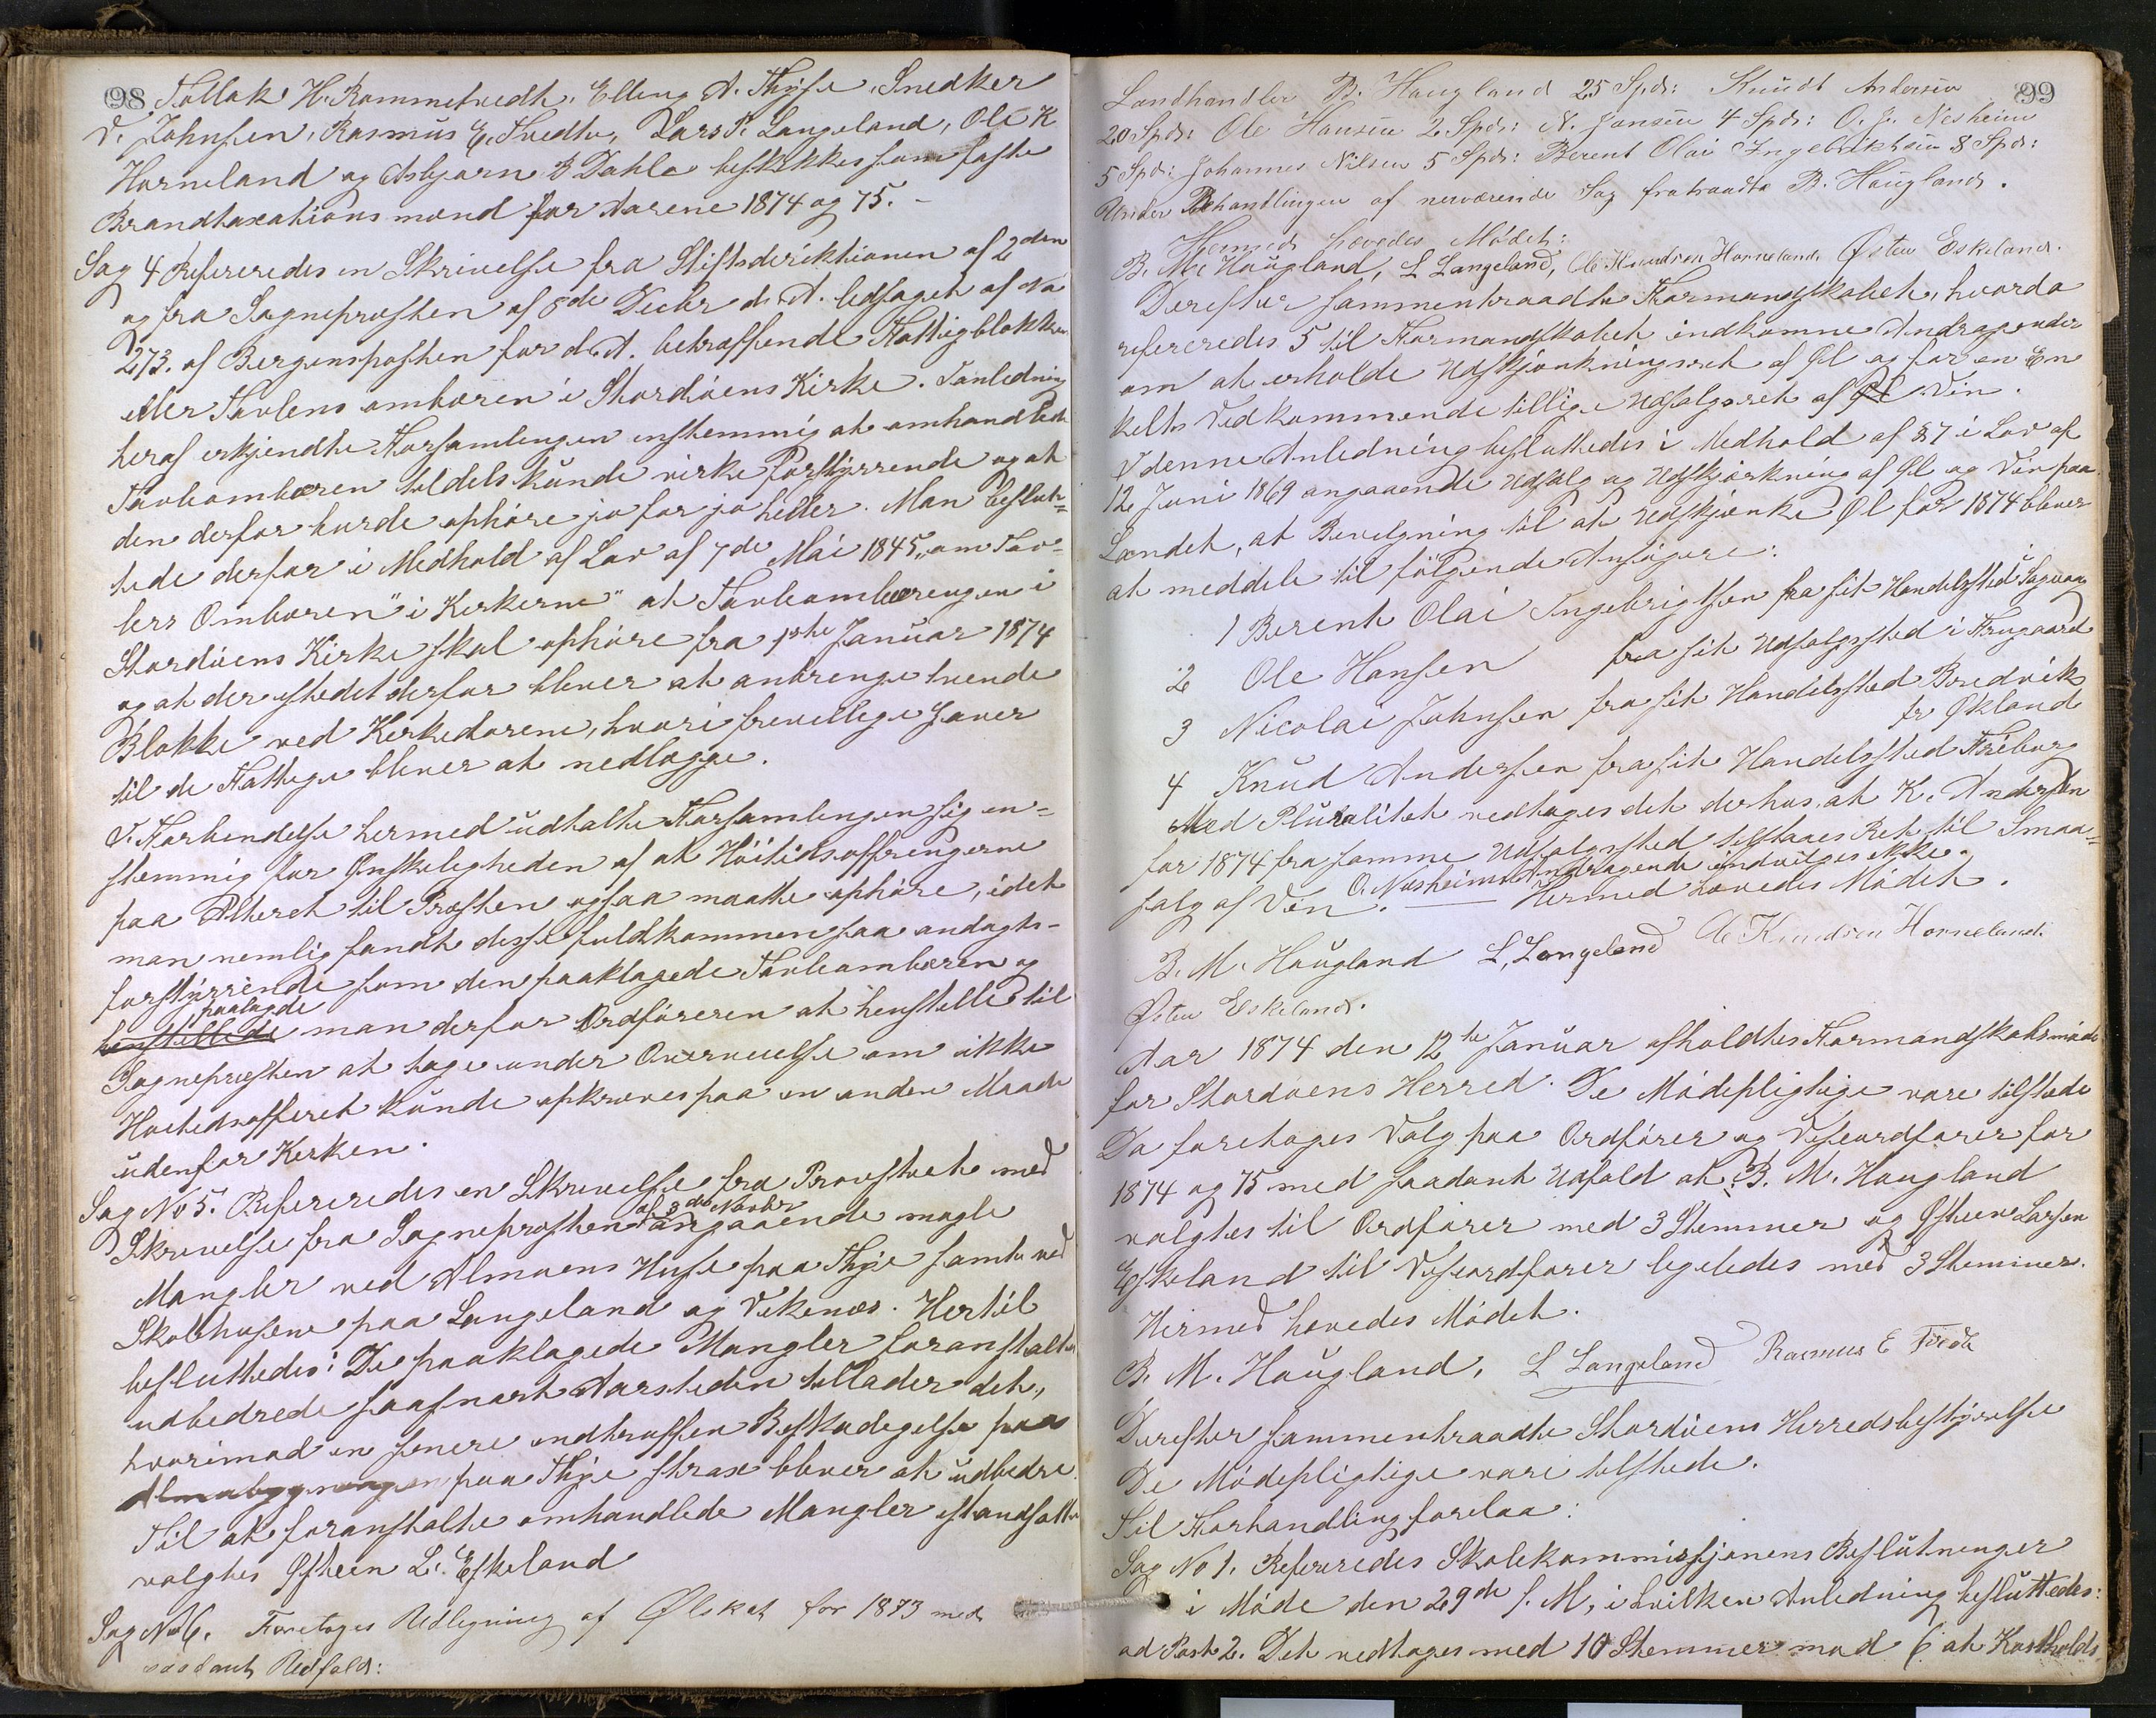 98 Tollak H. Rommetvedt, Elling A. Thyse, Snedker
V. Johnsen, Rasmus E. Tvedte, Lars P. Langeland, Ole K
Horneland og Asbjørn B Dahle beskikkes som faste
Brandtaxationsmænd for Aarene 1874 og 75. -
Sag 4 Refereredes en Skrivelse fra Stiftsdirektionen af 2den
og fra Sognepresten af 8de Decbr d. A. ledsaget af No
273. af Bergensposten for d. A. betræffende Fattigblokker
eller Tavlens ombæren i Stordøens Kirke. I anledning
heraf erkjendte Forsamlingen enstemmig at omhandlede
Tavleombæren tildels kunde virke forstyrrende og at
den derfor burde ophøre jo før jo heller. Man beslut=
tede derfor i Medhold af Lov af 7de Mai 1845 "om Tav=
lers Ombæren" i Kirkerne" at Tavleombæringen i
Stordøens Kirke skal ophøre fra 1ste Januar 1874
og at der istedet derfor bliver at anbringe tvende
Blokke ved Kirkedørene, hvori frivillige Gaver
til de Fattige bliver at nedlægge.
I Forbindelse hermed udtalte Forsamlingen sig en=
stemmig for Ønskeligheden af at Høitidsoffringerne
paa Alteret til Presten ogsaa maatte ophøre, idet
man nemlig fandt disse fuldkommen saa andagts-
forstyrrende som den paaklagede Tavleombæren og
paalagde
henstillede man derfor Ordføreren at henstille til
Sognepresten at tage under Overveielse om ikke
Høitidsofferet kunde opkræves paa en anden Maade
udenfor Kirken.
Sag No 5. Refereredes en Skrivelse fra Provstiet med
af 3de Novbr
Skrivelse fra Sognepresten angaaende nogle
Mangler ved Almuens Huse paa Thyse samt ved
Skolehusene paa Langeland og Vikenes. Hertil
besluttedes: De paaklagede Mangler foranstaltes
udbedrede saasnart Aarstiden tillader det,
hvorimod en senere indtruffen Beskadigelse paa
Almubygningen paa Thyse strax bliver at udbedre.
Til at foranstalte omhandlede Mangler istandsatte
valgtes Østein L. Eskeland
Sag No 6. Foretoges Udligning af Ølskat for 1873 med
saadant Udfald:
99
Landhandler B. Haugland 25 Spd: Knudt Andersen
20 Spd: Ole Hansen 2 Spd: N. Jansen 4 Spd: O. J. Nesheim
5 Spd: Johannes Nilsen 5 Spd: Berent Olai Ingebrikhsen 8 Spd:
Under Behandlingen af nerværende Sag fratraadte B. Haugland.
Hermed hævedes Mødet:
B. M. Haugland, L Langeland, Ole Knudsen Horneland, Østen Eskeland.
Derefter sammentraadte Formandskabet, hvorda
refereredes 5 til Formandskabet indkomne Andragender
om at erholde Udskjænkningsret af Øl og for en En
kelts Vedkommende tillige Udsalgsret af Øl Vin.
I denne Anledning besluttedes i Medhold af § 7 i Lov af
12 Juni 1869 angaaende Udsalg og Udskjænkning af Øl og Vin paa
Landet, at Bevilgning til at Udskjænke Øl for 1874 bliver
at meddele til følgende Ansøgere:
1 Berent Olai Ingebrigtsen fra sit Handelssted Sagvaag
2 Ole Hansen fra sit Udsalgssted i Haugaard
3 Nicolai Johnsen fra sit Handelssted Bredvik
fr Økland
4 Knud Andersen fra sit Handelssted Friborg
Med Pluralitet vedtoges det derhos, at K. Andersen
for 1874 fra samme Udsalgssted tilstaaes Ret til Smaa=
salg af Vin. O. Nesheims Andragende indvilges ikke.
Hermed hævedes Mødet.
B. M. Haugland L, Langeland Ole Knudsen Horneland
Østen Eskeland.
Aar 1874 den 12te Januar afholdtes Formandskabsmøde
for Stordøens Herred. De Mødepligtige vare tilstede
Da foretoges Valg paa Ordfører og Viseordfører for
1874 og 75 med saadant Udfald at: B. M. Haugland
valgtes til Ordfører med 3 Stemmer og Østeen Larsen
Eskeland til Viseordfører ligeledes med 3 Stemmer.
Hermed hævedes Mødet.
B. M. Haugland, L Langeland Rasmus E Tvedte
Derefter sammentraadte Stordøens Herredsbestyrelse
De Mødepligtige vare tilstede.
Til Forhandling forelaa:
Sag No 1. Refereredes Skolekommissjonens Beslutninger
i Møde den 29de f. M, i hvilken Anledning besluttedes:
ad Post 2. Det vedtoges med 10 Stemmer mod 6 at Kostholds